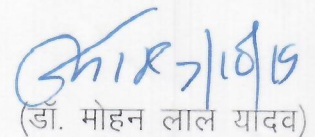 7/10/19
(डॉ. मोहन लाल यादव)